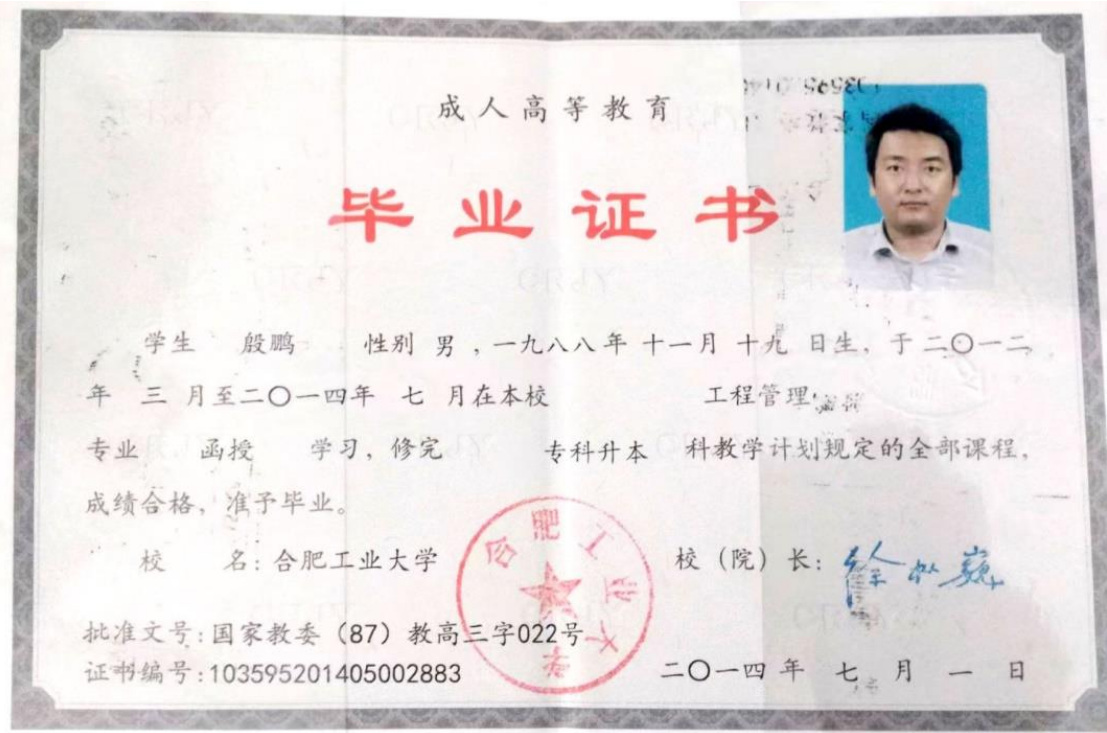 成人高等教育
毕业证书
学生 殷鹏 性别 男 ,一九八八年 十一月 十九 日生, 于二〇一二
年 三 月至二〇一四年 七 月在本校 工程管理
专业 函授 学习, 修完 专科升本 科教学计划规定的全部课程,
成绩合格, 准予毕业。
校 名: 合肥工业大学 校（院）长: 徐枞巍
合肥工业大学
批准文号:国家教委（87）教高三字022号
证书编号:103595201405002883 二〇一四年 七 月 一 日